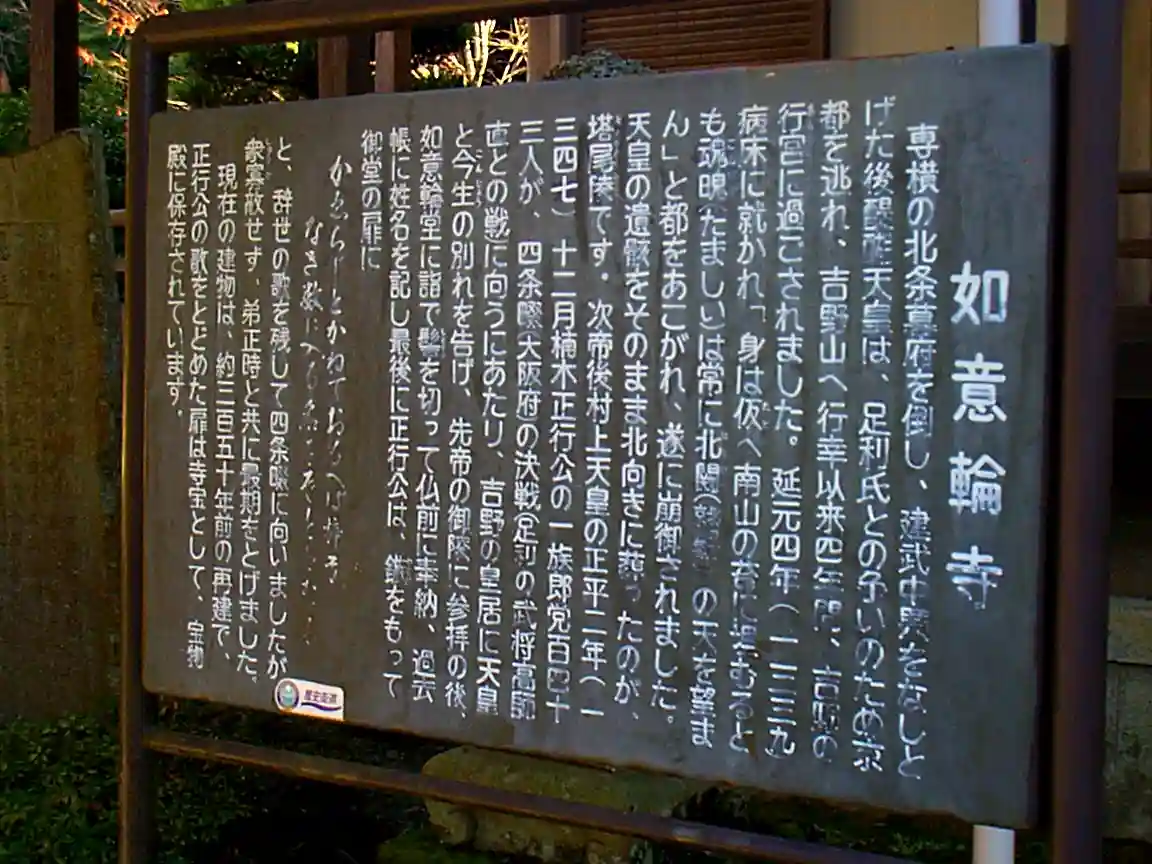 如意輪寺
専横の北条幕府を倒し、建武中興をなしと
げた後醍醐天皇は、足利氏との争いのため京
都を逃れ、吉野山へ行幸以来四年間、吉野の
行宮に過ごされました。延元四年(一三三九)
病床に就かれ「身は仮へ南山の苔に埋むると
も魂魄(たましい)は常に北闕 の天を望ま
ん」と都をあこがれ、遂に崩御されました。
天皇の遺骸をそのまま北向きに葬ったのが、
塔尾陵です。次帝後村上天皇の正平二年(一
三四七)十二月楠木正行公の一族郎党百四十
三人が、四条畷(大阪府)の決戦(足利の武将高師
直との戦)に向うにあたり、吉野の皇居に天皇
と今生の別れを告げ、先帝の御陵に参拝の後、
如意輪堂に詣で髻を切って仏前に奉納、過去
帳に姓名を記し最後に正行公は、鏃をもって
御堂の扉に
かゑらじとかねておもへば梓弓
なき数に入る
と、辞世の歌を残して四条畷に向いましたが
衆寡敵せず、弟正時と共に最期をとげました。
現在の建物は、約三百五十年前の再建で、
正行公の歌をとどめた扉は寺宝として、宝物
殿に保存されています。
歴史街道